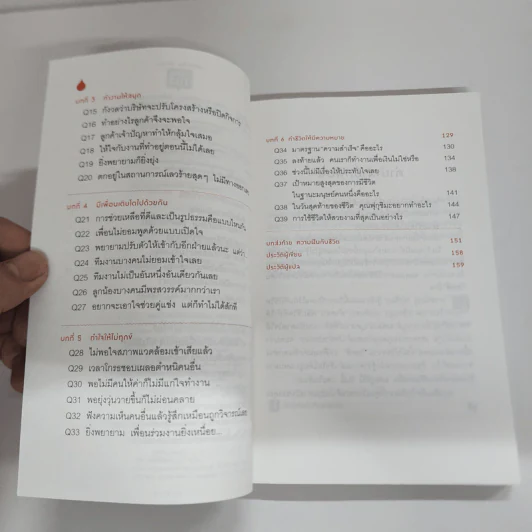 บทที่ 3 ทำงานให้สนุก
Q15 กังวลว่าบริษัทจะปรับโครงสร้างหรือปิดกิจการ
Q16 ทำอย่างไรลูกค้าจึงจะพอใจ
Q17 ลูกค้าเจ้าปัญหาทำให้กลุ้มใจเสมอ
Q18 ให้ใจกับงานที่ทำอยู่ตอนนี้ไม่ได้เลย
Q19 ยิ่งพยายามก็ยิ่งยุ่ง
Q20 ตกอยู่ในสถานการณ์เลวร้ายสุดๆ ไม่มีทางออก
บทที่ 4 มีเพื่อนเดินไปด้วยกัน
Q21 การช่วยเหลือที่ดีและเป็นรูปธรรมคือแบบไหนกัน
Q22 เพื่อนไม่ยอมพูดด้วยแบบเปิดใจ
Q23 พยายามปรับตัวให้เข้ากับอีกฝ่ายแล้วนะ แต่ว่า
Q24 ทีมงานบางคนไม่ยอมเข้าใจเลย
Q25 ทีมงานไม่เป็นอันหนึ่งอันเดียวกันเลย
Q26 ลูกน้องบางคนมีพรสวรรค์มากกว่าเรา
Q27 อยากจะเอาใจช่วยคู่แข่ง แต่ก็ทำไม่ได้สักที
บทที่ 5 ทำใจให้ไม่ทุกข์
Q28 ไม่พอใจสภาพแวดล้อมเข้าเสียแล้ว
Q29 เวลาโกรธชอบเผลอตำหนิคนอื่น
Q30 พอไม่มีคนให้ค่าก็ไม่มีแก่ใจทำงาน
Q31 พอยุ่งวุ่นวายขึ้นก็ไม่ผ่อนคลาย
Q32 ฟังความเห็นคนอื่นแล้วรู้สึกเหมือนถูกวิจารณ์
Q33 ยิ่งพยายาม เพื่อนร่วมงานยิ่งเหนื่อย...
บทที่ 6 ทำชีวิตให้มีความหมาย 129
Q34 มาตรฐาน "ความสำเร็จ" คืออะไร 130
Q35 ลงท้ายแล้ว คนเราก็ทำงานเพื่อเงินไม่ใช่หรือ 134
Q36 ช่วงนี้ไม่มีเรื่องให้ประทับใจเลย 138
Q37 เป้าหมายสูงสุดของการมีชีวิต
ในฐานะมนุษย์คนหนึ่งคืออะไร 141
Q38 ในวันสุดท้ายของชีวิต คุณฟุกุชิมะอยากทำอะไร 144
Q39 การใช้ชีวิตให้สวยงามที่สุดเป็นอย่างไร 147
บทส่งท้าย ความฝันกับชีวิต 151
ประวัติผู้เขียน 158
ประวัติผู้แปล 159